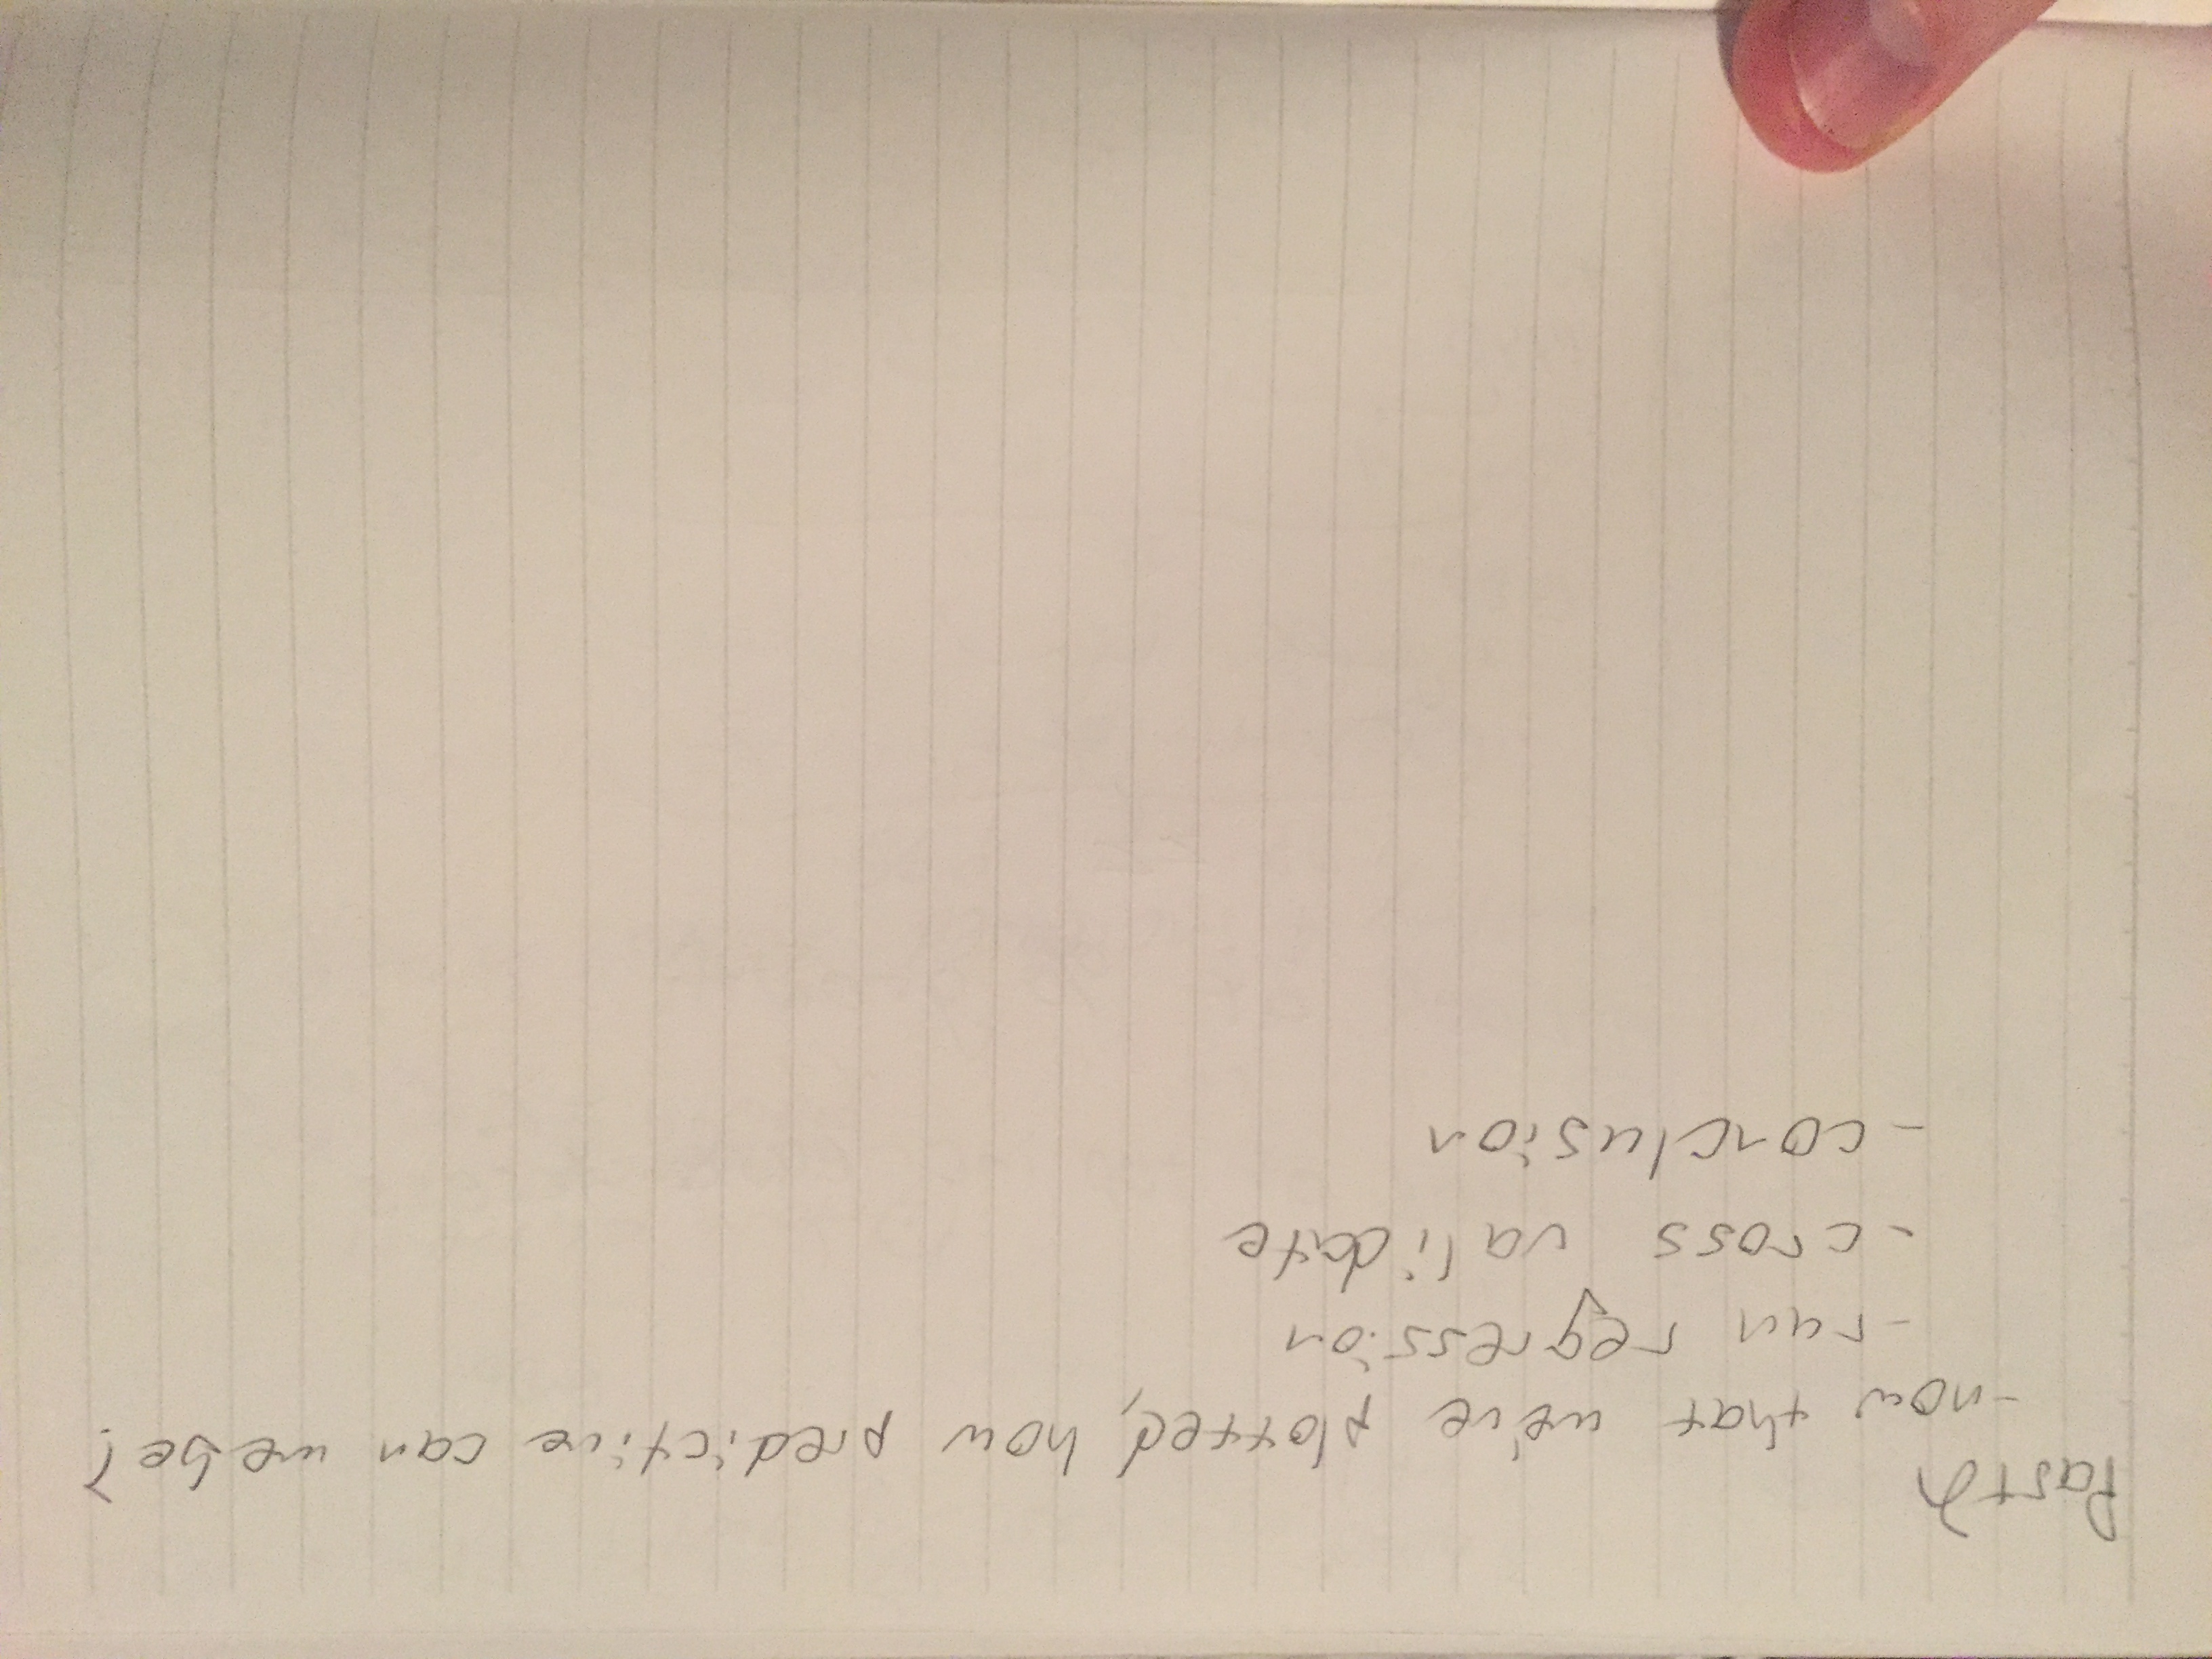 Part 2
-now that we've plotted, how predictive can we be?
-run regression
-cross validate
-conclusion